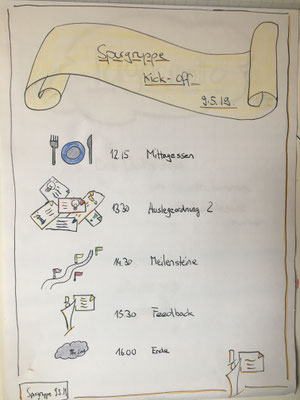 Spurgruppe
Kick-Off
9.5.19
12.15 Mittagessen
13.30 Auslegeordnung 2
14.30 Meilensteine
15.30 Feedback
16.00 Ende